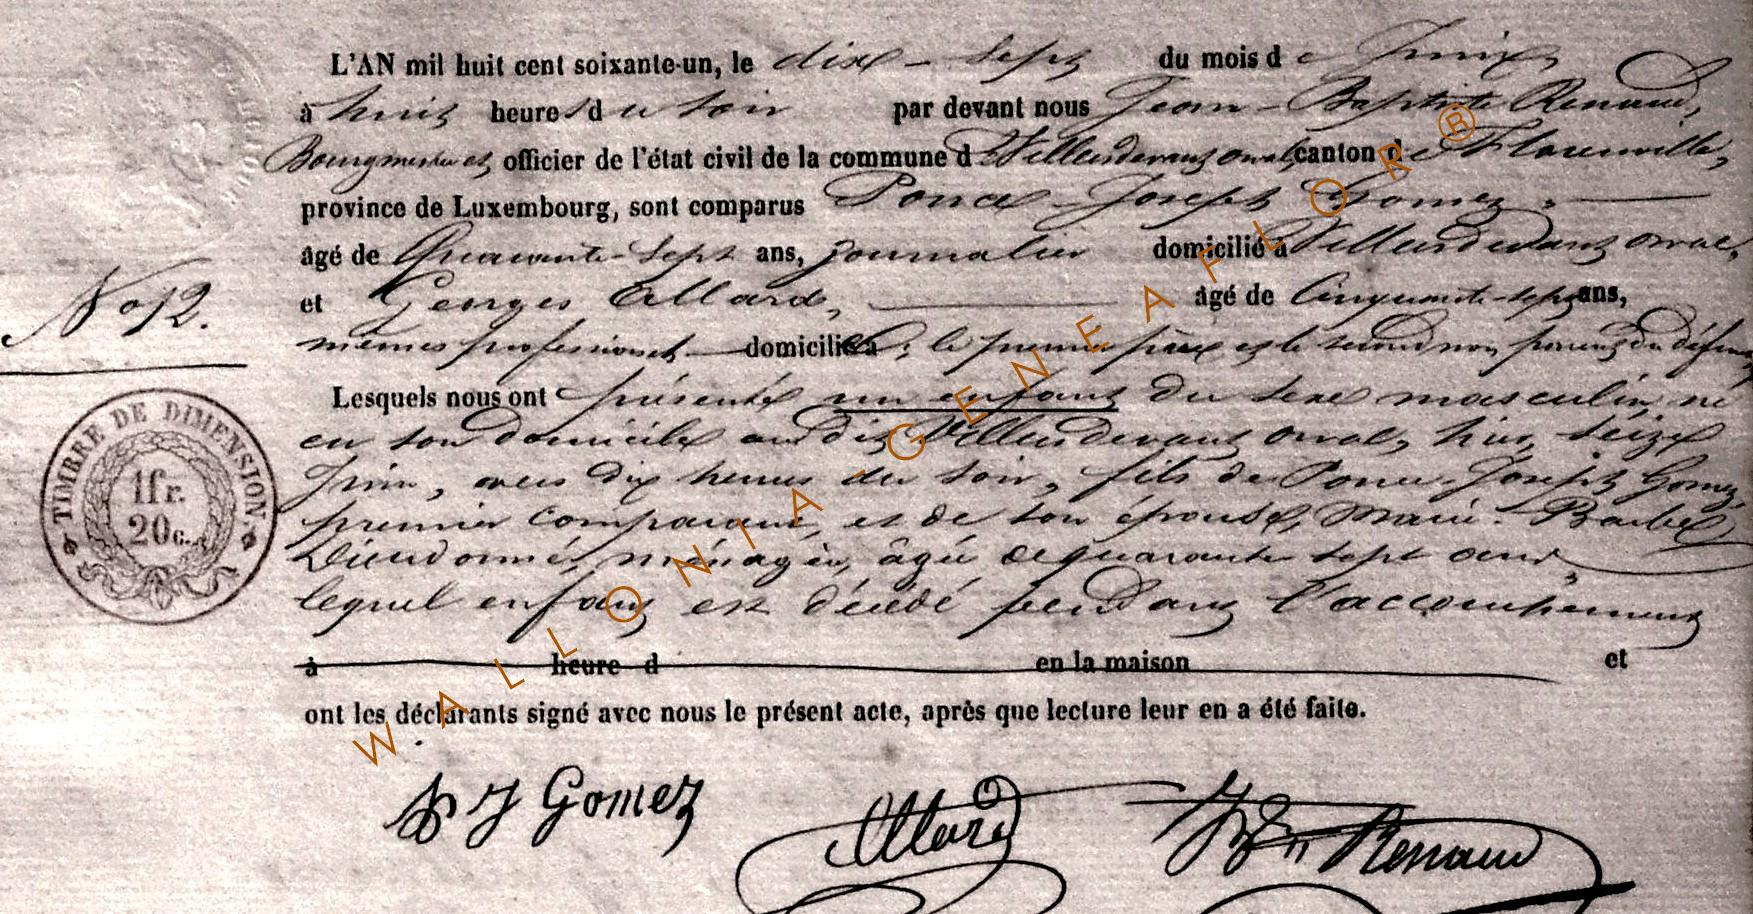 L'AN mil huit cent soixante-un, le dix-sept du mois de Juin,
à huit heures du soir par devant nous Jean-Baptiste Renaud,
Bourgmestre et, officier de l'état civil de la commune de Villersdevant orval, canton de Florenville,
province de Luxembourg, sont comparus Ponce-Joseph Gomez,
âgé de Quarante-Sept ans, journalier domicilié à Villersdevant orval,
et Georges Allard, âgé de Cinquante-sept ans,
No 12.
mêmes professionet domicilié le premier père et le second non parent du défunt
Lesquels nous ont présenté un enfant du sexe masculin, né
en son domicile audit Villersdevant orval, hier, seize
Juin, vers dix heures du soir, fils de Ponce-Joseph Gomez
premier comparant, et de son épouse, Marie-Barbe
Dieudonné, ménagère, âgée de quarante sept ans,
lequel enfant est décédé pendant l'accouchement
à heure d en la maison et
ont les déclarants signé avec nous le présent acte, après que lecture leur en a été faite.
TIMBRE DE DIMENSION.
1fr.
20c.
P J Gomez Allard JBte Renaud
WALLONIA-GENEAFLOR®